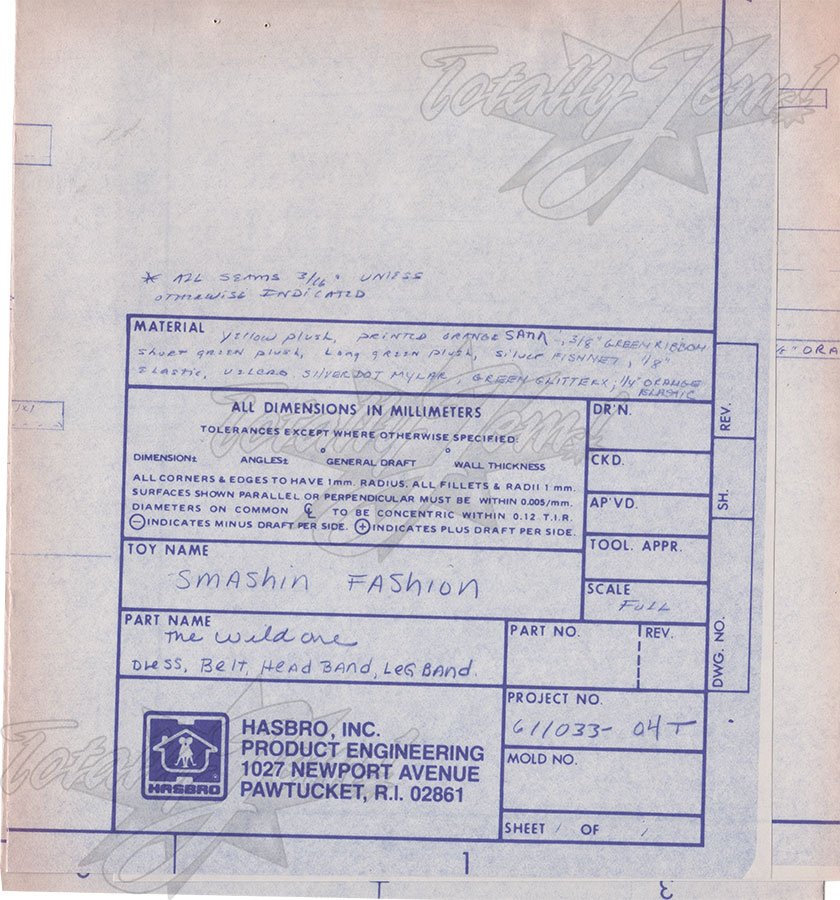 Totally Jem!
* ALL SEAMS 3/16" UNLESS
OTHERWISE INDICATED
MATERIAL
yellow plush, PRINTED ORANGE SATIN, 3/8" GREEN RIBBON
short green plush, Long green plush, SILVER FISHNET, 1/8"
Elastic, VELCRO SILVER DOT MYLAR, GREEN GLITTEREX, 1/4" ORANGE
ELASTIC
" ORA
ALL DIMENSIONS IN MILLIMETERS
TOLERANCES EXCEPT WHERE OTHERWISE SPECIFIED:
DIMENSION± ANGLES± ° GENERAL DRAFT ° WALL THICKNESS
ALL CORNERS & EDGES TO HAVE 1mm. RADIUS. ALL FILLETS & RADII 1 mm.
SURFACES SHOWN PARALLEL OR PERPENDICULAR MUST BE WITHIN 0.005/mm.
DIAMETERS ON COMMON ℄ TO BE CONCENTRIC WITHIN 0.12 T.I.R.
⊖INDICATES MINUS DRAFT PER SIDE. ⊕INDICATES PLUS DRAFT PER SIDE.
DR'N.
CKD.
AP'VD.
TOOL. APPR.
SCALE
FULL
REV.
SH.
DWG. NO.
TOY NAME
SMASHIN FASHION
PART NAME
The Wild One
DRESS, BELT, HEAD BAND, LEG BAND.
PART NO.
REV.
PROJECT NO.
611033-04T
MOLD NO.
SHEET 1 OF 1
HASBRO
HASBRO, INC.
PRODUCT ENGINEERING
1027 NEWPORT AVENUE
PAWTUCKET, R.I. 02861
1
Totally Jem!
Totally Jem!